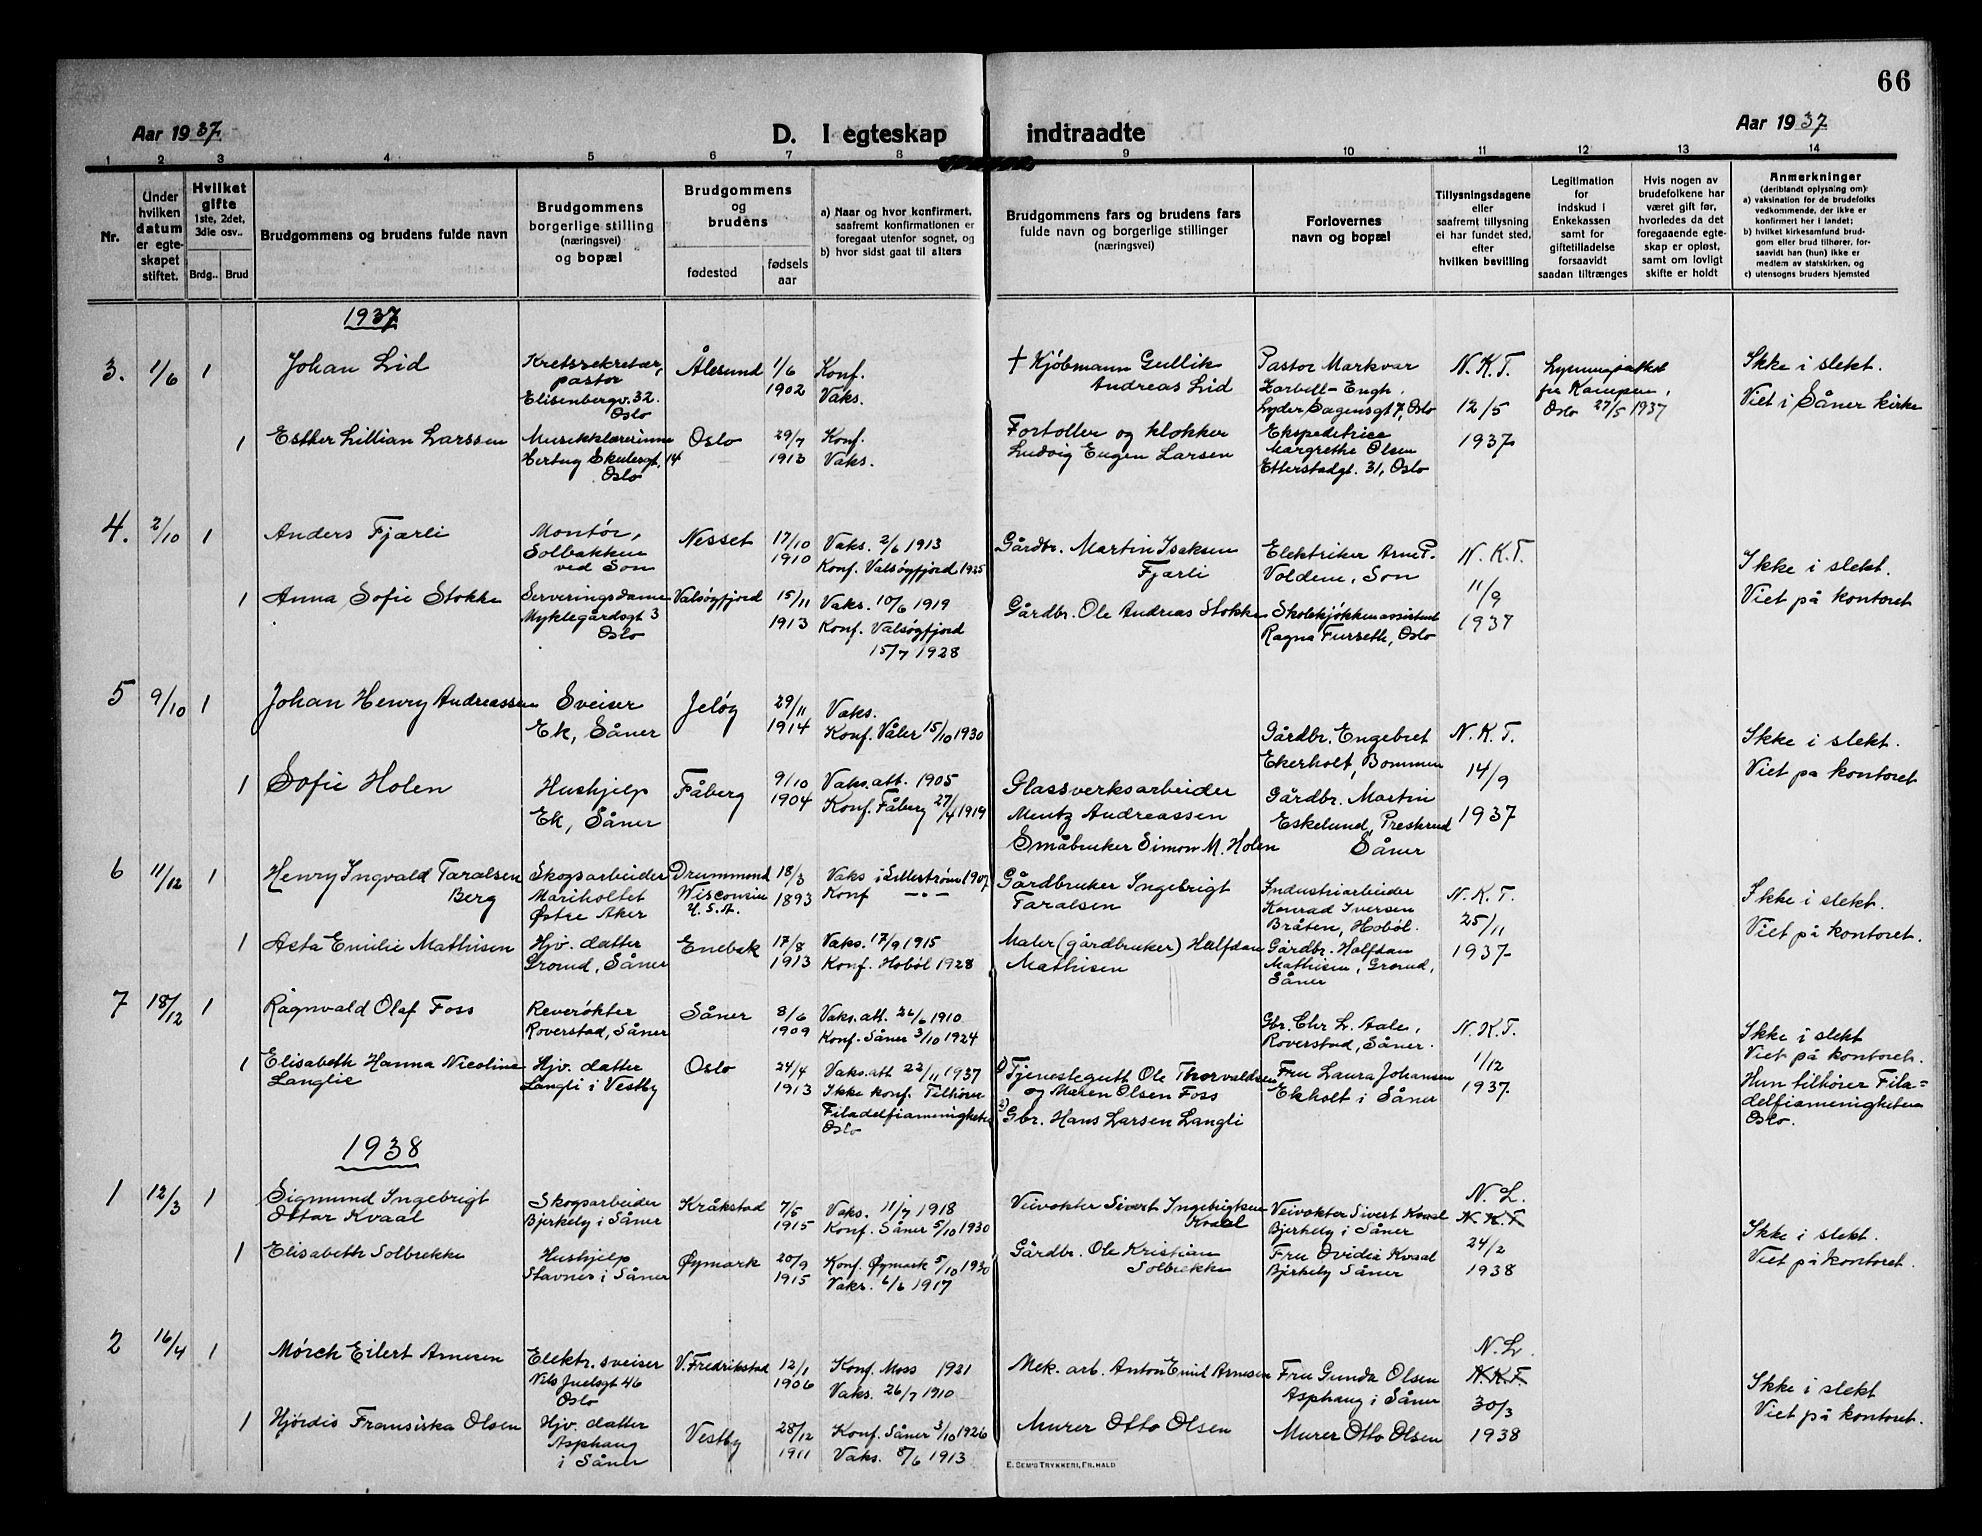 66
Aar 1937
D. I egteskap indtraadte
Aar 1937
1 2 3 4 5 6 7 8 9 10 11 12 13 14
Nr.
Under hvilken datum er egte-skapet stiftet.
Hvilket gifte
1ste, 2det, 3die osv..
Brdg.. Brud
Brudgommens og brudens fulde navn
Brudgommens
borgerlige stilling
(næringsvei)
og bopæl
Brudgommens
og
brudens
fødested
fødsels aar
a) Naar og hvor konfirmert,
saafremt konfirmationen er
foregaat utenfor sognet, og
b) hvor sidst gaat til alters
Brudgommens fars og brudens fars
fulde navn og borgerlige stillinger
(næringsvei)
Forlovernes
navn og bopæl
Tillysningsdagene
eller
saafremt tillysning
ei har fundet sted,
efter
hvilken bevilling
Legitimation
for
indskud i
Enkekassen
samt for
giftetilladelse
forsaavidt
saadan tiltrænges
Hvis nogen av
brudefolkene har
været gift før,
hvorledes da det
foregaaende egte-
skap er opløst,
samt om lovligt
skifte er holdt
Anmerkninger
(deriblandt oplysning om):
a) vaksination for de brudefolks
vedkommende, der ikke er
konfirmert her i landet;
b) hvilket kirkesamfund brud-
gom eller brud tilhører, for-
saavidt han (hun) ikke er
medlem av statskirken, og
c) utensogns bruders hjemsted
1937
3. 1/6 1
Johan Lid
Kretssekretær,
pastor
Elisenbergv. 32.
Oslo
Ålesund
1/6
1902
Konf.
Vaks.
† Kjøbmann Gullik
Andreas Lid
Pastor Markvar
Zarbell-Engh.
Lyder Sagensgt 7, Oslo
N.K.T.
12/5
1937
fra Kampen,
Oslo 27/5 1937
Ikke i slekt.
Viet i Såner kirke
1
Esther Lillian Larssen
Musikklærerinne
Hertug Skulesgt. 14
Oslo
Oslo
29/7
1913
Konf.
Vaks.
Fortoller og klokker
Ludvig Eugen Larsen
Ekspeditrice
Margrethe Olsen
Etterstadgt. 31, Oslo
4. 2/10 1
Anders Fjærli
Montør,
Solbakken
ved Son
Nesset
17/10
1910
Vaks. 2/6 1913
Konf. Valsøyfjord 1925
Gårdbr. Martin Isaksen
Fjærli
Elektriker Arne P.
Voldene, Son
N.K.T.
11/9
1937
Ikke i slekt.
Viet på kontoret
1
Anna Sofie Stokke
Serveringsdame
Myklegårdsgt 3
Oslo
Valsøyfjord
15/11
1913
Vaks. 10/6 1919
Konf. Valsøyfjord
15/7 1928
Gårdbr. Ole Andreas Stokke
Skolekjøkkenassistent
Ragna Furseth, Oslo
5 9/10 1
Johan Henry Andreassen
Sveiser
Ek, Såner
Jeløy
29/11
1914
Vaks.
Konf. Våler 15/10 1930
Gårdbr. Engebret
Ekerholt, Bommen
N.K.T.
14/9
1937
Ikke i slekt.
Viet på kontoret
1
Sofie Holen
Hushjelp
Ek, Såner
Fåberg
9/10
1904
Vaks. att. 1905
Konf. Fåberg 27/4 1919
Glassverksarbeider
Mentz Andreassen
Småbruker Simon M. Holen
Gårdbr. Martin
Eskelund, Prestrud
Såner
6 11/12 1
Henry Ingvald Taralsen
Berg
Skogsarbeider
Mariholtet
Østre Aker
Drummund
Wisconsin
U.S.A.
18/3
1893
Vaks i Lillestrøm 1907
Konf —"—
Gårdbruker Ingebrigt
Taralsen
Industriarbeider
Konrad Iversen
Bråten, Hobøl.
N.K.T.
25/11
1937
Ikke i slekt.
Viet på kontoret.
1
Asta Emilie Mathisen
Hjv. datter
Grorud, Såner
Enebak
17/8
1913
Vaks. 17/9 1915
Konf. Hobøl 1928
Maler (gårdbruker) Halfdan
Mathisen
Gårdbr. Halfdan
Mathisen, Grorud,
Såner
7 18/12 1
Ragnvald Olaf Foss
Reverøkter
Roverstad, Såner
Såner
8/6
1909
Vaks. att. 26/6 1910
Konf. Såner 3/10 1924
Gbr. Chr L. Aale,
Roverstad, Såner.
N.K.T.
1/12
1937.
Ikke i slekt
Viet på kontoret.
Hun tilhører Fila=
delfiamenigheten
Oslo.
1
Elisabeth Hanna Nicoline
Langlie
Hjv. datter
Langli i Vestby
Oslo
24/4
1913
Vaks. att 22/11 1937
Ikke konf. Tilhører
Filadelfiamenigheten
Oslo
1) Tjenestegutt Ole Thorvaldsen
og Maren Olsen Foss
2) Gbr. Hans Larsen Langli
Fru Laura Johansen
Ekholt i Såner
1938
1 12/3 1
Sigmund Ingebrigt
Ottar Kvaal
Skogsarbeider
Bjerkely i Såner
Kråkstad
7/5
1915
Vaks. 11/7 1918
Konf. Såner 5/10 1930
Veivokter Sivert Ingebrigtsen
Kvaal
Veivokter Sivert Kvaal
Bjerkely i Såner
N.L.
N.K.T.
24/2
1938
Ikke i slekt.
Viet på kontoret.
1
Elisabeth Solbrekke
Hushjelp
Stavnes i Såner
Øymark
20/9
1915
Konf. Øymark 5/10 1930
Vaks. 6/6 1917
Gårdbr. Ole Kristian
Solbrekke
Fru Ovidia Kvaal
Bjerkely Såner
2 16/4 1
Mørch Eilert Arnesen
Elektr. sveiser
Nils Juelsgt 46
Oslo
V. Fredrikstad
12/1
1906
Konf. Moss 1921
Vaks. 26/7 1910
Mek. arb. Anton Emil Arnesen
Fru Gunda Olsen
Asphaug i Såner
N.L.
N.K.T.
30/3
1938
Ikke i slekt
Viet på kontoret.
1
Hjørdis Fransiska Olsen
Hjv. datter
Asphaug
i Såner
Vestby
28/12
1911
Konf. Såner 3/10 1926
Vaks. 8/6 1913
Murer Otto Olsen
Murer Otto Olsen
E. SEM'S TRYKKERI, FR.HALD